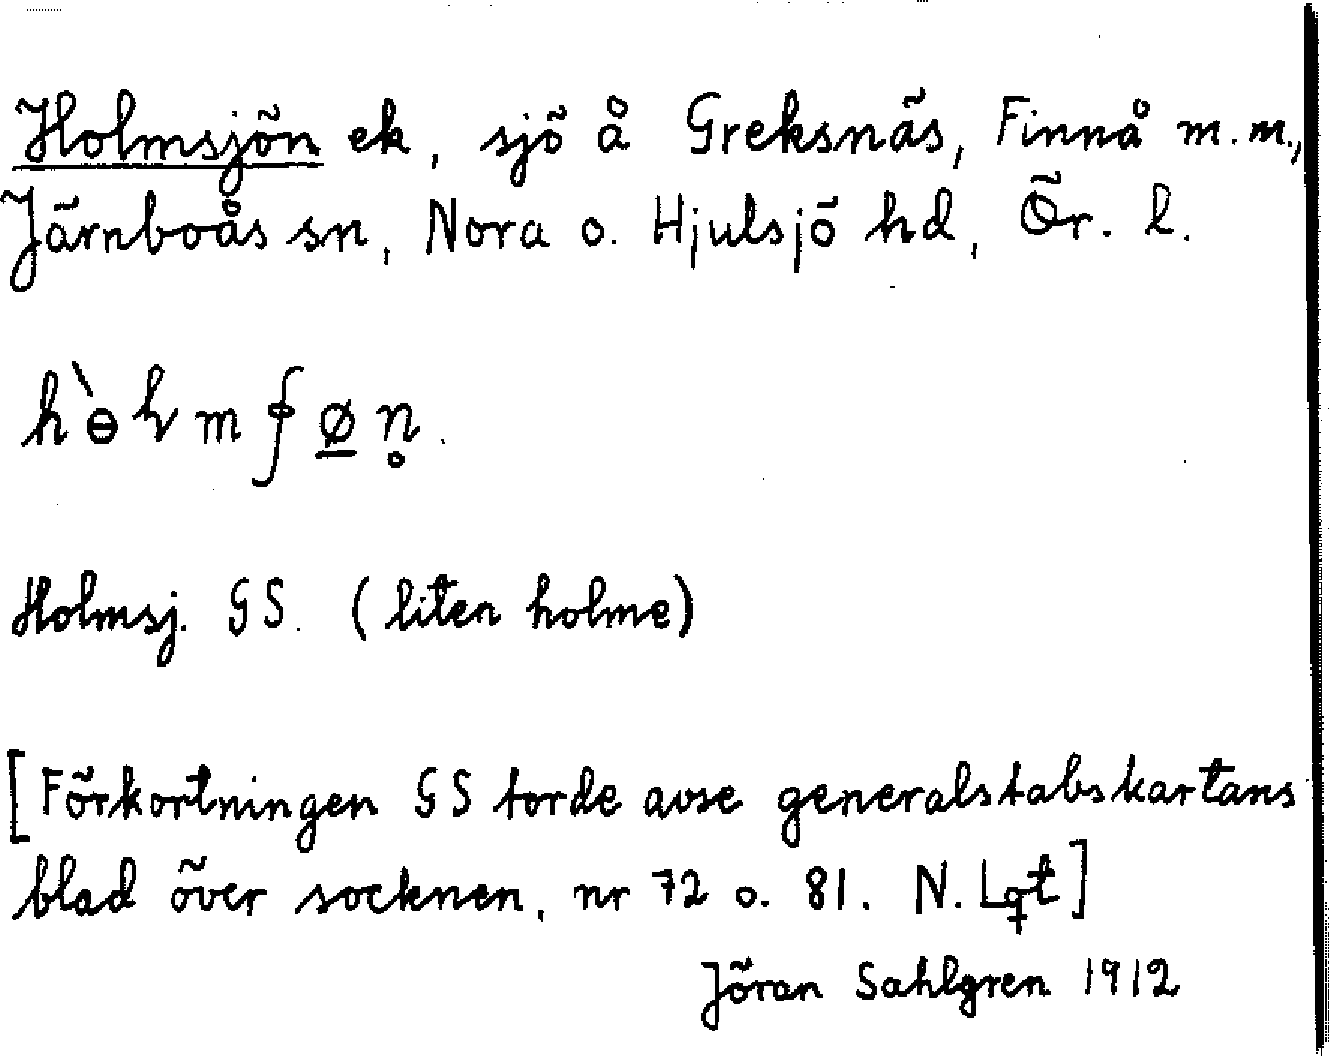 Holmsjön ek, sjö å Greksnäs, Finnå m.m.,
Järnboås sn, Nora o. Hjulsjö hd, Ör. l.
Holmsj. GS. (liten holme)
[Förkortningen GS torde avse generalstabskartans
blad över socknen, nr 72 o. 81. N. Lqt]
Jöran Sahlgren 1912